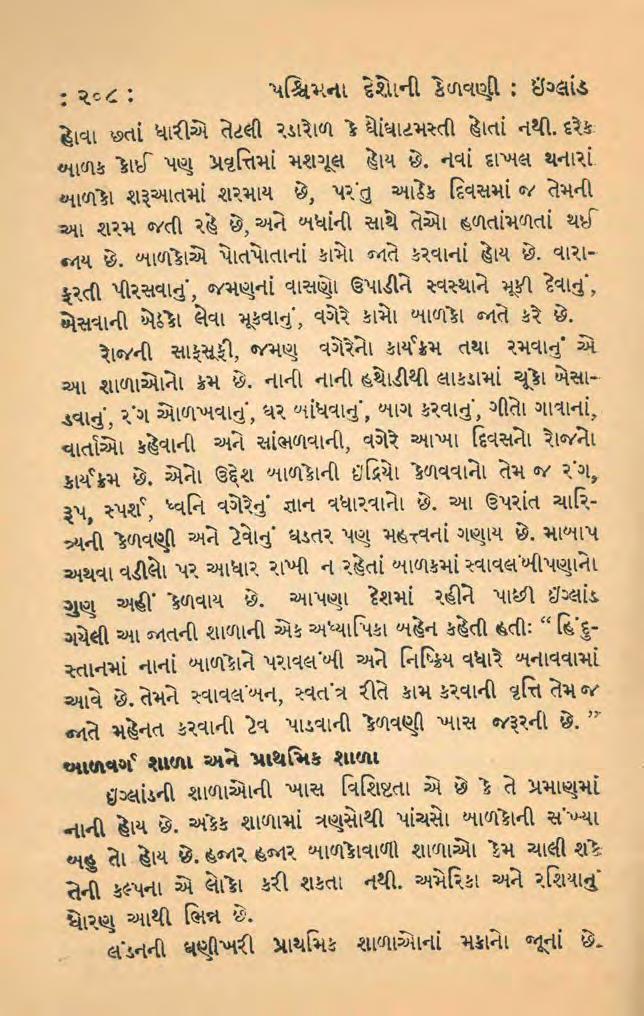 : ૨૦૮ : પશ્ચિમના દેશોની કેળવણી : ઇંગ્લાંડ
હોવા છતાં ધારીએ તેટલી રડારોળ કે ધોંઘાટમસ્તી હોતાં નથી. દરેક
બાળક કોઈ પણ પ્રવૃત્તિમાં મશગૂલ હોય છે. નવાં દાખલ થનારાં
બાળકો શરૂઆતમાં શરમાય છે, પરંતુ આઠેક દિવસમાં જ તેમની
આ શરમ જતી રહે છે, અને બધાંની સાથે તેઓ હળતાંમળતાં થઈ
જાય છે. બાળકોએ પોતપોતાનાં કામો જાતે કરવાનાં હોય છે. વારા-
ફરતી પીરસવાનું, જમણનાં વાસણો ઉપાડીને સ્વસ્થાને મૂકી દેવાનું,
બેસવાની બેઠકો લેવા મૂકવાનું, વગેરે કામો બાળકો જાતે કરે છે.
રોજની સાફસૂફી, જમણ વગેરેનો કાર્યક્રમ તથા રમવાનું એ
આ શાળાઓનો ક્રમ છે. નાની નાની હથોડીથી લાકડામાં ચૂકો બેસા-
ડવાનું, રંગ ઓળખવાનું, ઘર બાંધવાનું, બાગ કરવાનું, ગીતો ગાવાનાં,
વાર્તાઓ કહેવાની અને સાંભળવાની, વગેરે આખા દિવસનો રોજનો
કાર્યક્રમ છે. એનો ઉદ્દેશ બાળકોની ઇંદ્રિયો કેળવવાનો તેમ જ રંગ,
રૂપ, સ્પર્શ, ધ્વનિ વગેરેનું જ્ઞાન વધારવાનો છે. આ ઉપરાંત ચારિ-
ત્ર્યની કેળવણી અને ટેવોનું ઘડતર પણ મહત્ત્વનાં ગણાય છે. માબાપ
અથવા વડીલો પર આધાર રાખી ન રહેતાં બાળકમાં સ્વાવલંબીપણાનો
ગુણ અહીં કેળવાય છે. આપણા દેશમાં રહીને પાછી ઇંગ્લાંડ
ગયેલી આ જાતની શાળાની એક અધ્યાપિકા બહેન કહેતી હતીઃ “ હિંદુ-
સ્તાનમાં નાનાં બાળકોને પરાવલંબી અને નિષ્ક્રિય વધારે બનાવવામાં
આવે છે. તેમને સ્વાવલંબન, સ્વતંત્ર રીતે કામ કરવાની વૃત્તિ તેમ જ
જાતે મહેનત કરવાની ટેવ પાડવાની કેળવણી ખાસ જરૂરની છે. ”
બાળવર્ગ શાળા અને પ્રાથમિક શાળા
ઇંગ્લાંડની શાળાઓની ખાસ વિશિષ્ટતા એ છે કે તે પ્રમાણમાં
નાની હોય છે. અકેક શાળામાં ત્રણસોથી પાંચસો બાળકોની સંખ્યા
બહુ તો હોય છે. હજાર હજાર બાળકોવાળી શાળાઓ કેમ ચાલી શકે
તેની કલ્પના એ લોકો કરી શકતા નથી. અમેરિકા અને રશિયાનું
ધોરણ આથી ભિન્ન છે.
લંડનની ઘણીખરી પ્રાથમિક શાળાઓનાં મકાનો જૂનાં છે.